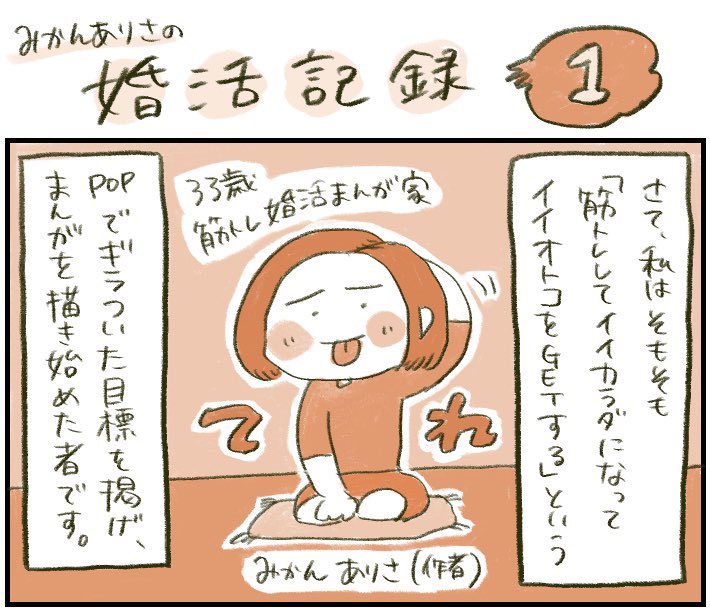 みかんありさの
婚活記録
1
さて、私はそもそも
「筋トレしてイイカラダになって
イイオトコをGETする」という
33歳
筋トレ婚活まんが家
てれ
みかん ありさ(作者)
POPでギラついた目標を掲げ、
まんがを描き始めた者です。